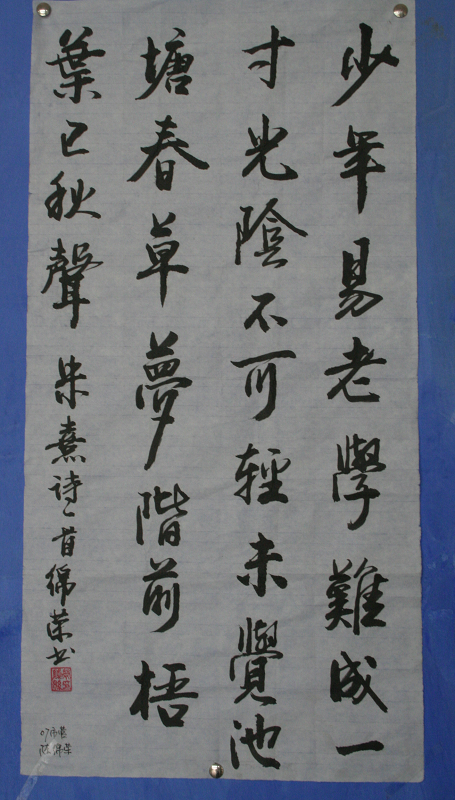 少年易老學難成一
寸光陰不可輕未覺池
塘春草夢階前梧
葉已秋聲 朱熹诗一首 绵荣书